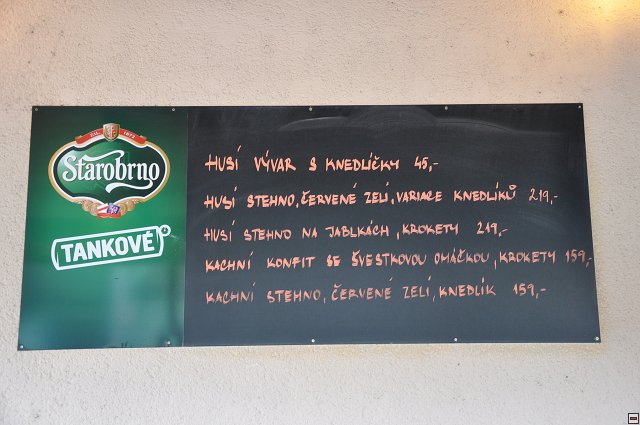 EST. 1872
Starobrno
TANKOVÉ
HUSÍ VÝVAR S KNEDLÍČKY 45,-
HUSÍ STEHNO, ČERVENÉ ZELÍ, VARIACE KNEDLÍKŮ 219,-
HUSÍ STEHNO NA JABLKÁCH, KROKETY 219,-
KACHNÍ KONFIT SE ŠVESTKOVOU OMÁČKOU, KROKETY 159,-
KACHNÍ STEHNO, ČERVENÉ ZELÍ, KNEDLÍK 159,-